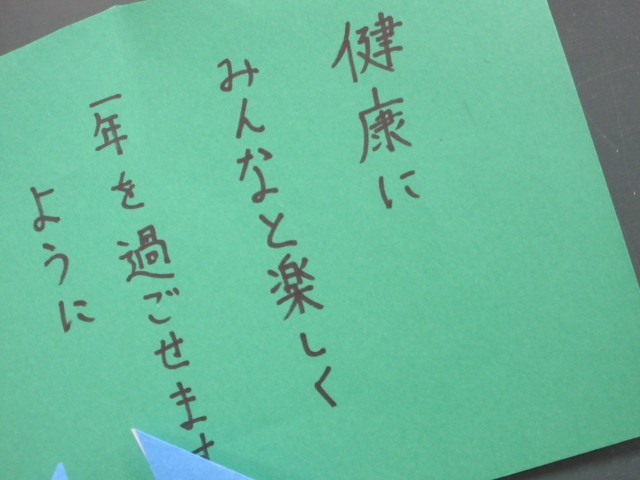 健康に
みんなと楽しく
一年を過ごせます
ように